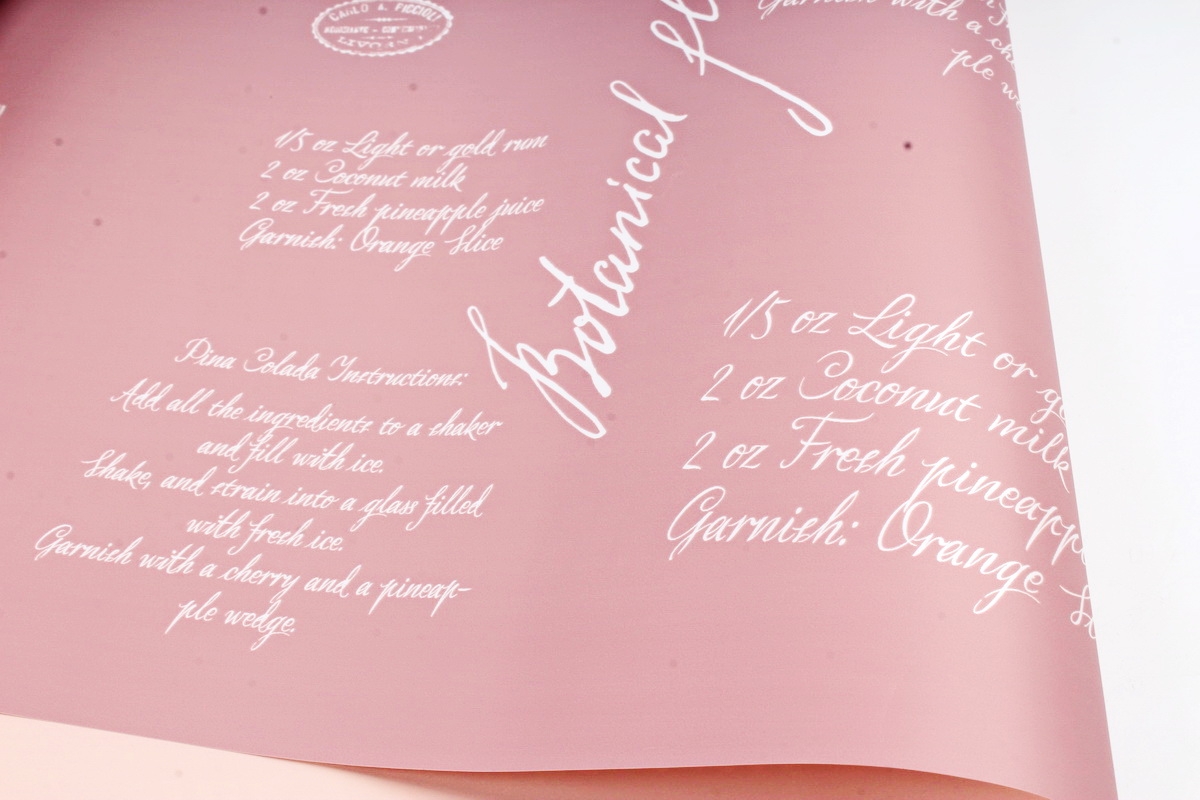 CARLO A. FICCIOLI
1/5 oz Light or gold rum
2 oz Coconut milk
2 oz Fresh pineapple juice
Garnish: Orange Slice
Pina Colada Instructions:
Add all the ingredients to a shaker
and fill with ice.
Shake, and strain into a glass filled
with fresh ice.
Garnish with a cherry and a pineap-
ple wedge.
Botanical
Garnish with a
ple
1/5 oz Light or
2 oz Coconut milk
2 oz Fresh pineapp
Garnish: Orange